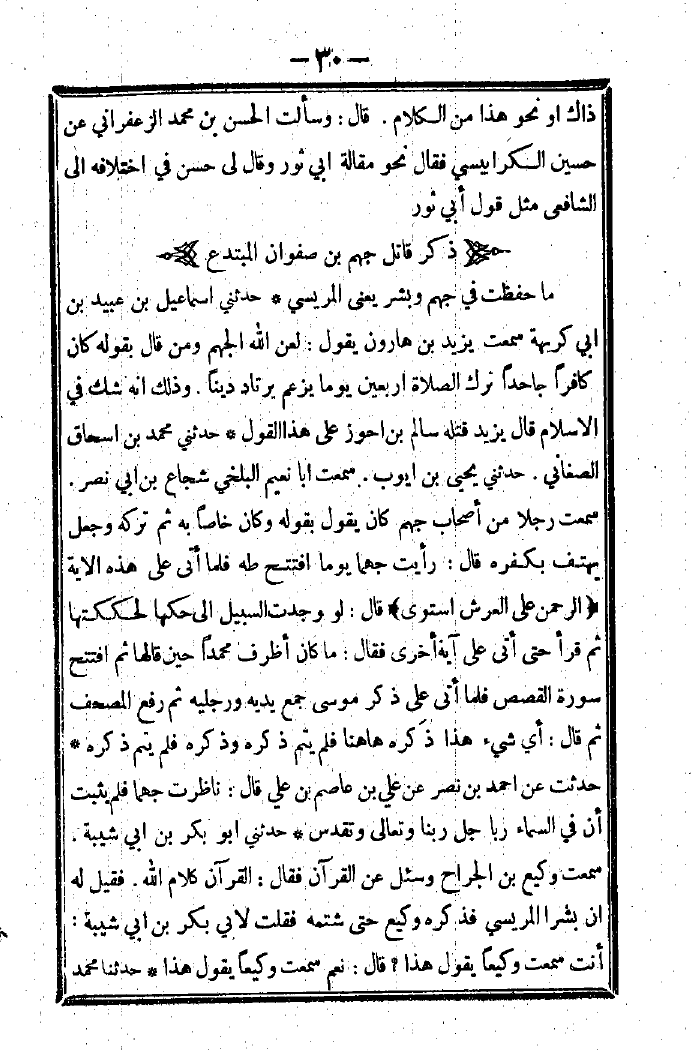 — ٣٠ —
ذاك او نحو هذا من الكلام . قال : وسألت الحسن بن محمد الزعفراني عن
حسين الكرابيسي فقال نحو مقالة ابي ثور وقال لى حسن في اختلافه الى
الشافعى مثل قول أبي ثور
ذكر قاتل جهم بن صفوان المبتدع
ما حفظت في جهم وبشر يعنى المريسي * حدثني اسماعيل بن عبيد بن
ابي كريمة سمعت يزيد بن هارون يقول : لعن الله الجهم ومن قال بقوله كان
كافراً جاحداً ترك الصلاة اربعين يوما يزعم يرتاد ديناً . وذلك انه شك في
الاسلام قال يزيد قتله سالم بن احوز على هذا القول * حدثني محمد بن اسحاق
الصغاني . حدثني يحيى بن ايوب . سمعت ابا نعيم البلخي شجاع بن ابي نصر .
سمعت رجلا من أصحاب جهم كان يقول بقوله وكان خاصاً به ثم تركه وجعل
يهتف بكفره قال : رأيت جهما يوما افتتح طه فلما أتى على هذه الاية
﴿الرحمن على العرش استوى﴾ قال : لو وجدت السبيل الى حكها لحككتها
ثم قرأ حتى أتى على آية أخرى فقال : ما كان أظرف محمداً حين قالها ثم افتتح
سورة القصص فلما أتى على ذكر موسى جمع يديه ورجليه ثم رفع المصحف
ثم قال : أي شيء هذا ذكره هاهنا فلم يتم ذكره وذكره فلم يتم ذكره *
حدثت عن احمد بن نصر عن علي بن عاصم بن علي قال : ناظرت جهما فلم يثبت
أن في السماء ربا جل ربنا وتعالى وتقدس * حدثني ابو بكر بن ابي شيبة .
سمعت وكيع بن الجراح وسئل عن القرآن فقال : القرآن كلام الله . فقيل له
ان بشرا المريسي فذكره وكيع حتى شتمه فقلت لابي بكر بن ابي شيبة :
أنت سمعت وكيعاً يقول هذا ؟ قال : نعم سمعت وكيعاً يقول هذا * حدثنا محمد